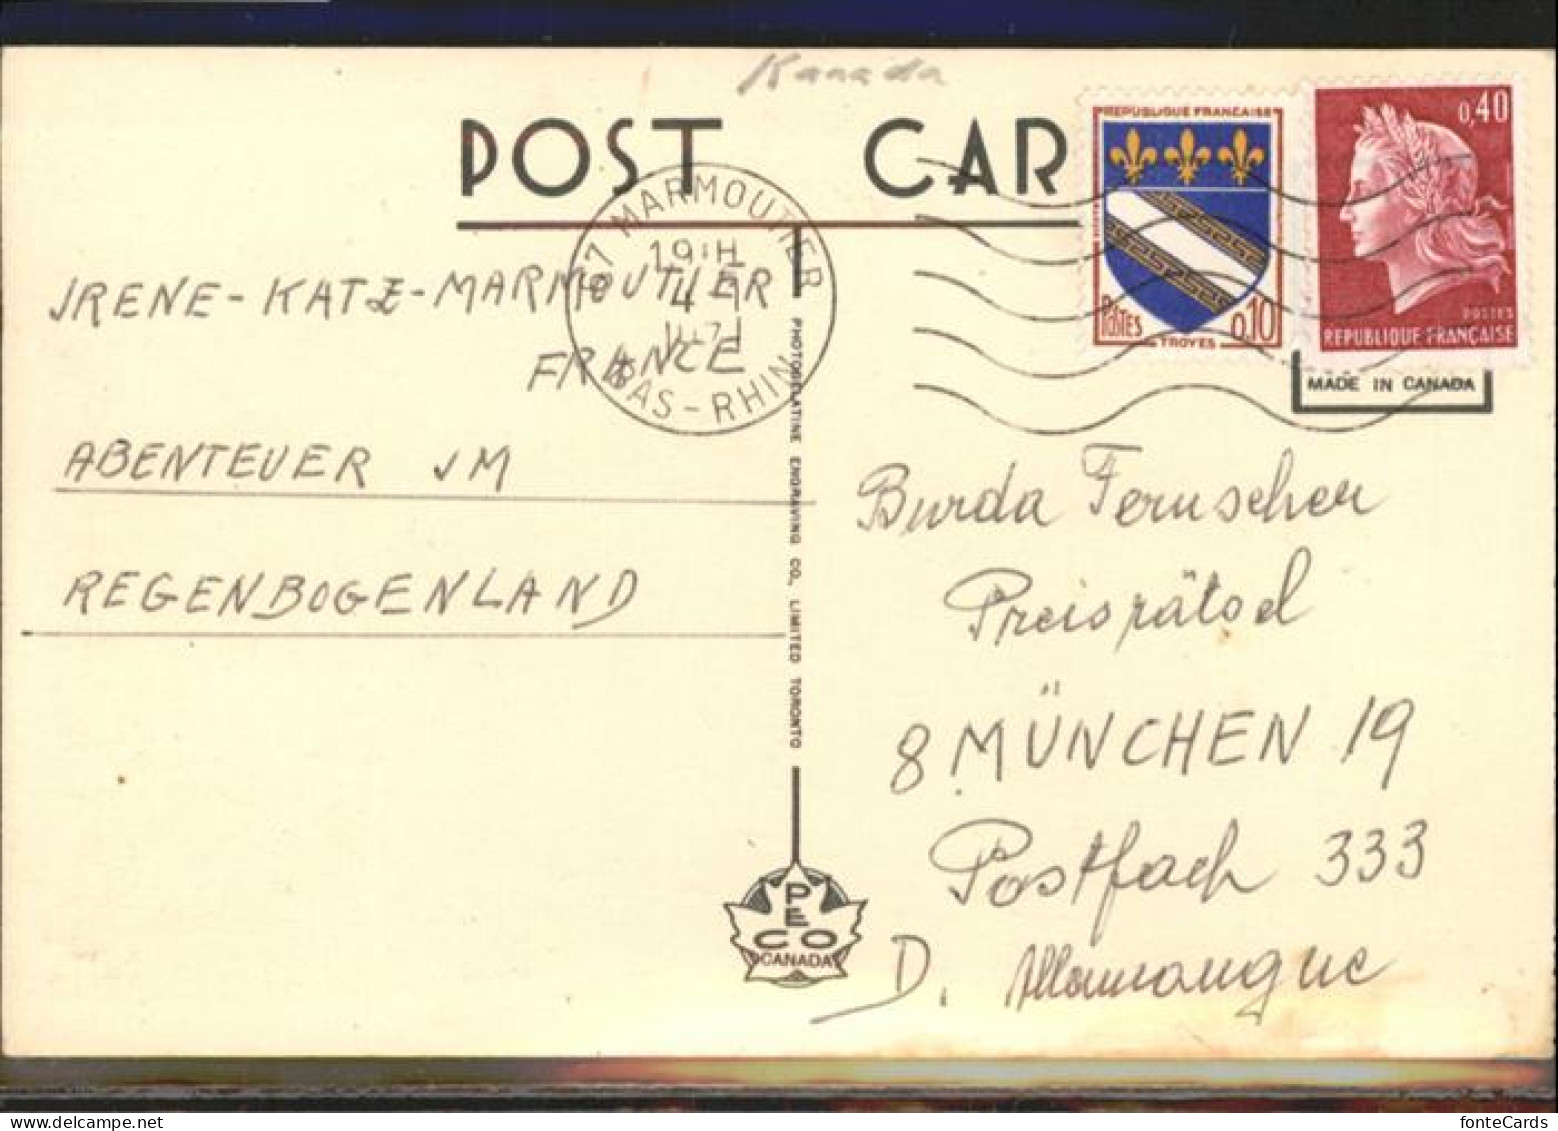 Kanada
POST CAR
REPUBLIQUE FRANCAISE
POSTES
0,10
TROYES
0,40
POSTES
REPUBLIQUE FRANÇAISE
MADE IN CANADA
67 MARMOUTIER
19 H
4
BAS-RHIN
JRENE-KATZ-MARMOUTIER
FRANCE
ABENTEUER JM
REGENBOGENLAND
PHOTOGELATINE ENGRAVING CO., LIMITED TORONTO
PECO
CANADA
Burda Fernseher
Preisrätsel
8 MÜNCHEN 19
Postfach 333
D. Allemangue
fonteCards